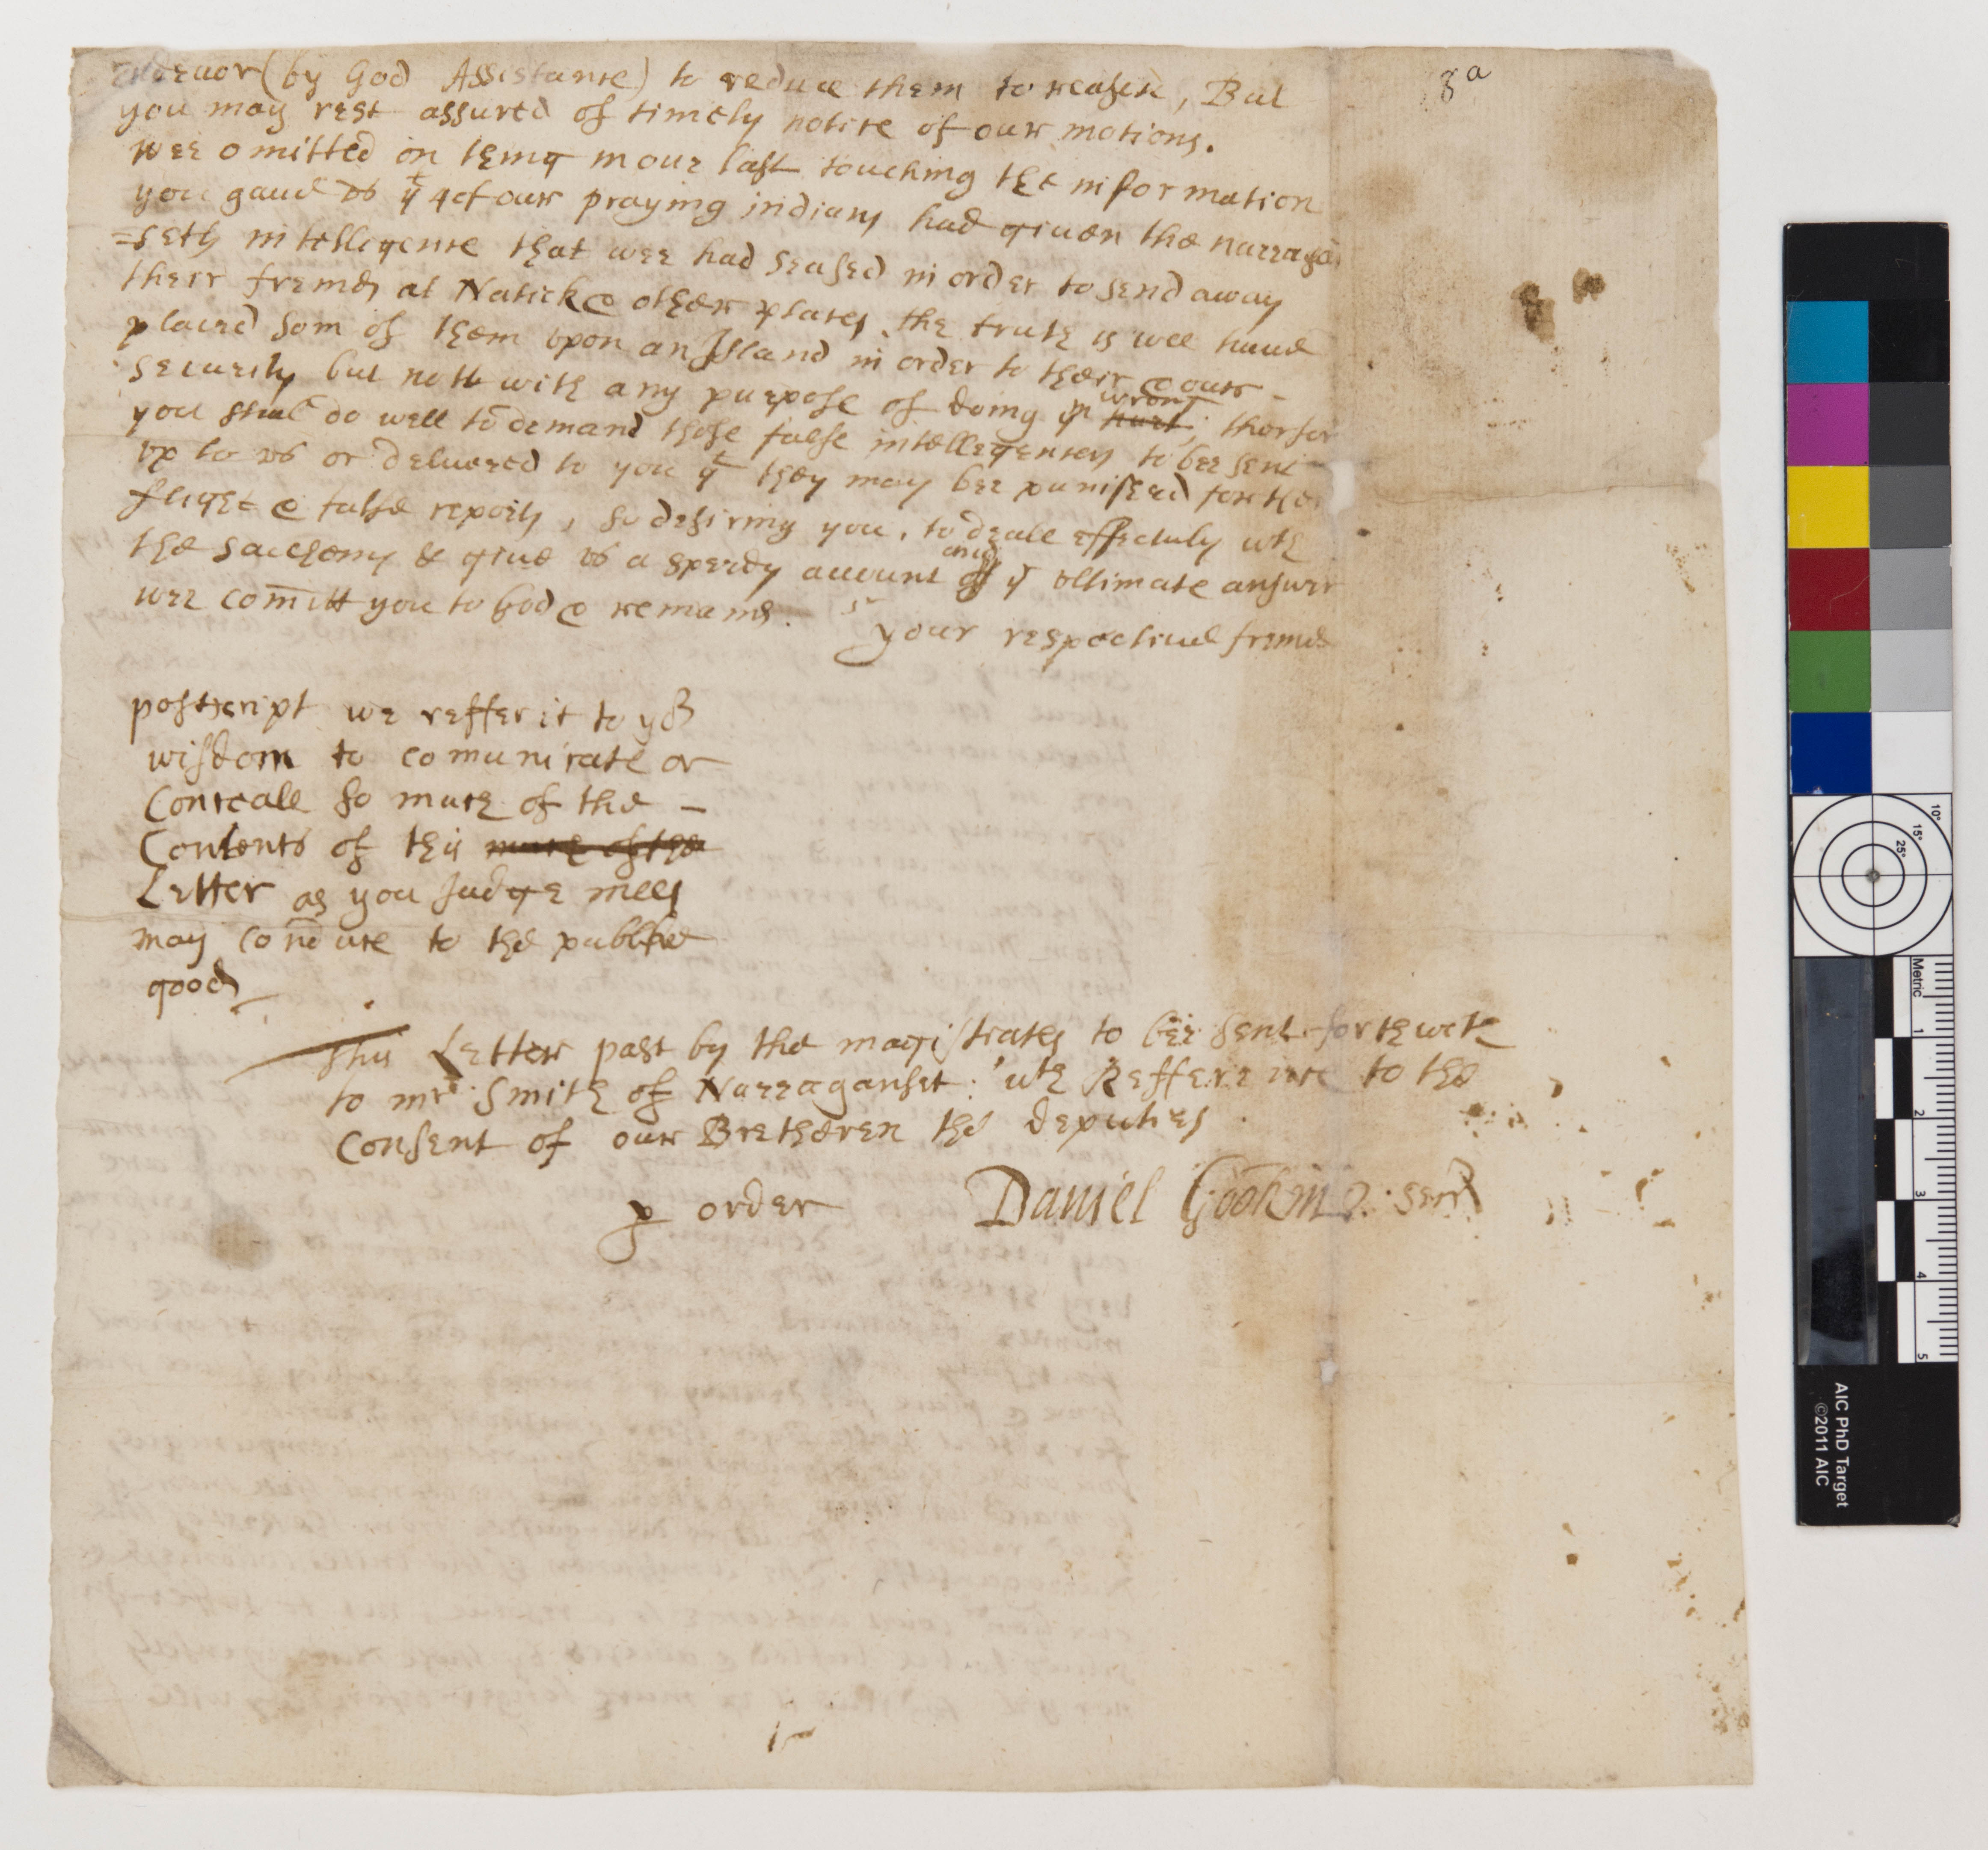 endeuor (by God Assistance) to reduce them to reason, But
8a
you may rest assured of timely notice of our motions.
wee omitted on thing in our last touching the information
you gaue vs yt of our praying indians had giuen the narragan
=sets intelligence that wee had seased in order to send away
their freinds at Natick & other places. the truth is wee haue
placed som of them vpon an Island in order to their & our -
security but nott with any purpose of doing ym wrong hurt, therfor
you shall do well to demand those false intelligencers to bee sent
vp to vs or deliuered to you yt they may bee punished for the
flight & false reports, so desiring you, to deale effectuly wth
the sachems & giue vs a speedy account and of ye vltimate answer
wee comitt you to God & remaine.
sr your respectiue freinds
postscript we reffer it to yor
wisdom to comunicate or
Conceale so much of the -
Contents of this much of the
Letter as you Judge meet
may conduce to the publike
good
This Letter past by the magistrates to bee sent forthwith
to mr Smith of Narraganset: wth Refference to the
Consent of our Bretheren the deputies
p order Daniel Gookin : senr
AIC PhD Target
©2011 AIC
Metric
1
2
3
4
5
10°
15°
25°